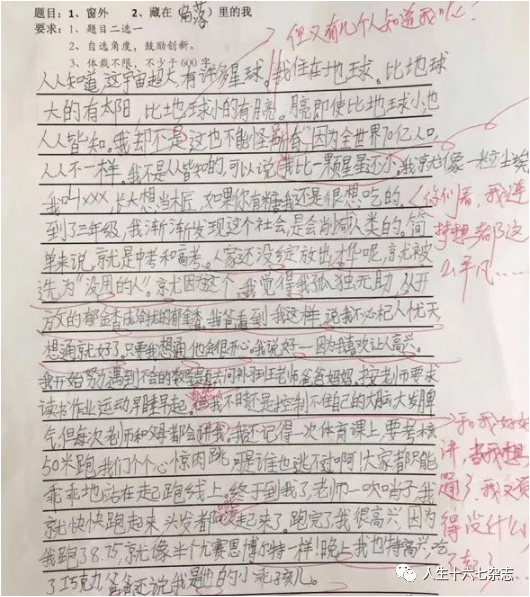 题目：1、窗外 2、藏在(角落)里的我
要求：1、题目二选一
2、自选角度，鼓励创新。
3、体裁不限，不少于600字
但又有几个人知道我呢？
人人知道，这宇宙超大，有许多星球。我住在地球。比地球
大的有太阳，比地球小的有月亮。月亮即使比地球小，也
人人皆知。我却不是，这也不能怪所有，因为全世界70亿人口，
人人不一样。我不是人人皆知的，可以说我比一颗星星还小，我就像一粒尘埃
我叫xxx，长大想当木匠，如果你有糖我还是很想吃的。
到了三年级，我渐渐发现这个社会，是会消灭人类的。简
单来说，就是中考和高考。人家还没绽放出才华呢，就被
选为“没用的人”。就因为这个，我觉得我孤独无助，从开
放的郁金香成合拢的郁金香。我爸看到我这样，说我不必杞人忧天，
想通就好了，只要我想通他会很开心。我说好－因为我喜欢让人高兴。
我开始努力，遇到不会的数学题去问补习班老师爸爸妈妈，按老师要求
读书作业运动早睡早起。但我不时还是控制不住自己的大脑大发脾
气，但每次老师和父母都会哄我。我还记得一次体育课上，要考核
50米跑，我们个个心惊肉跳，可是谁也逃不过啊！大家都只能
乖乖地站在起跑线上。终于到我了，老师一吹哨子，我
就快快跑起来，头发都飞起来了。跑完了，我很高兴，因为
我跑了8.75，就像半个尤赛恩博尔特一样！晚上，我也特高兴，吃
了巧克力，爸爸还说我是他的小乖孩儿。
你们看，我连
梦想都这
么平凡……
和我好好
讲，当我想
通了，我又觉
得没什么
了……
人生十六七杂志